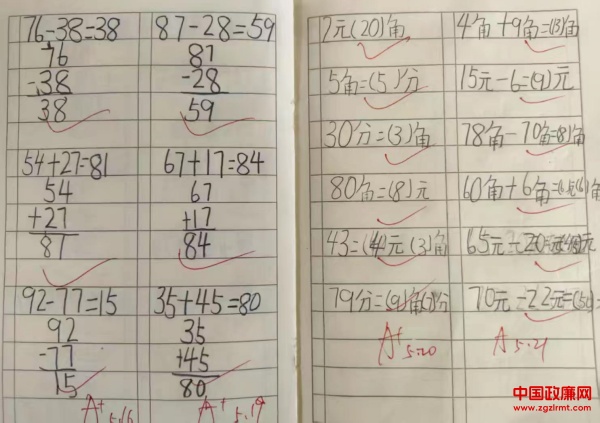 76-38=38
76
-38
38
87-28=59
87
-28
59
54+27=81
54
+27
81
67+17=84
67
+17
84
92-77=15
92
-77
15
A+ 5.16
35+45=80
35
+45
80
A+ 5.19
2元(20)角
5角=(5)分
30分=(3)角
80角=(8)元
43=(4)元(3)角
79分=(9)角()分
A+ 5.20
4角+9角=(13)角
15元-6=(9)元
78角-70角=(8)角
60角+6角=()角
65元-20=元
70元-22元=
A 5.21
中国政廉网
www.zgzlrmt.com